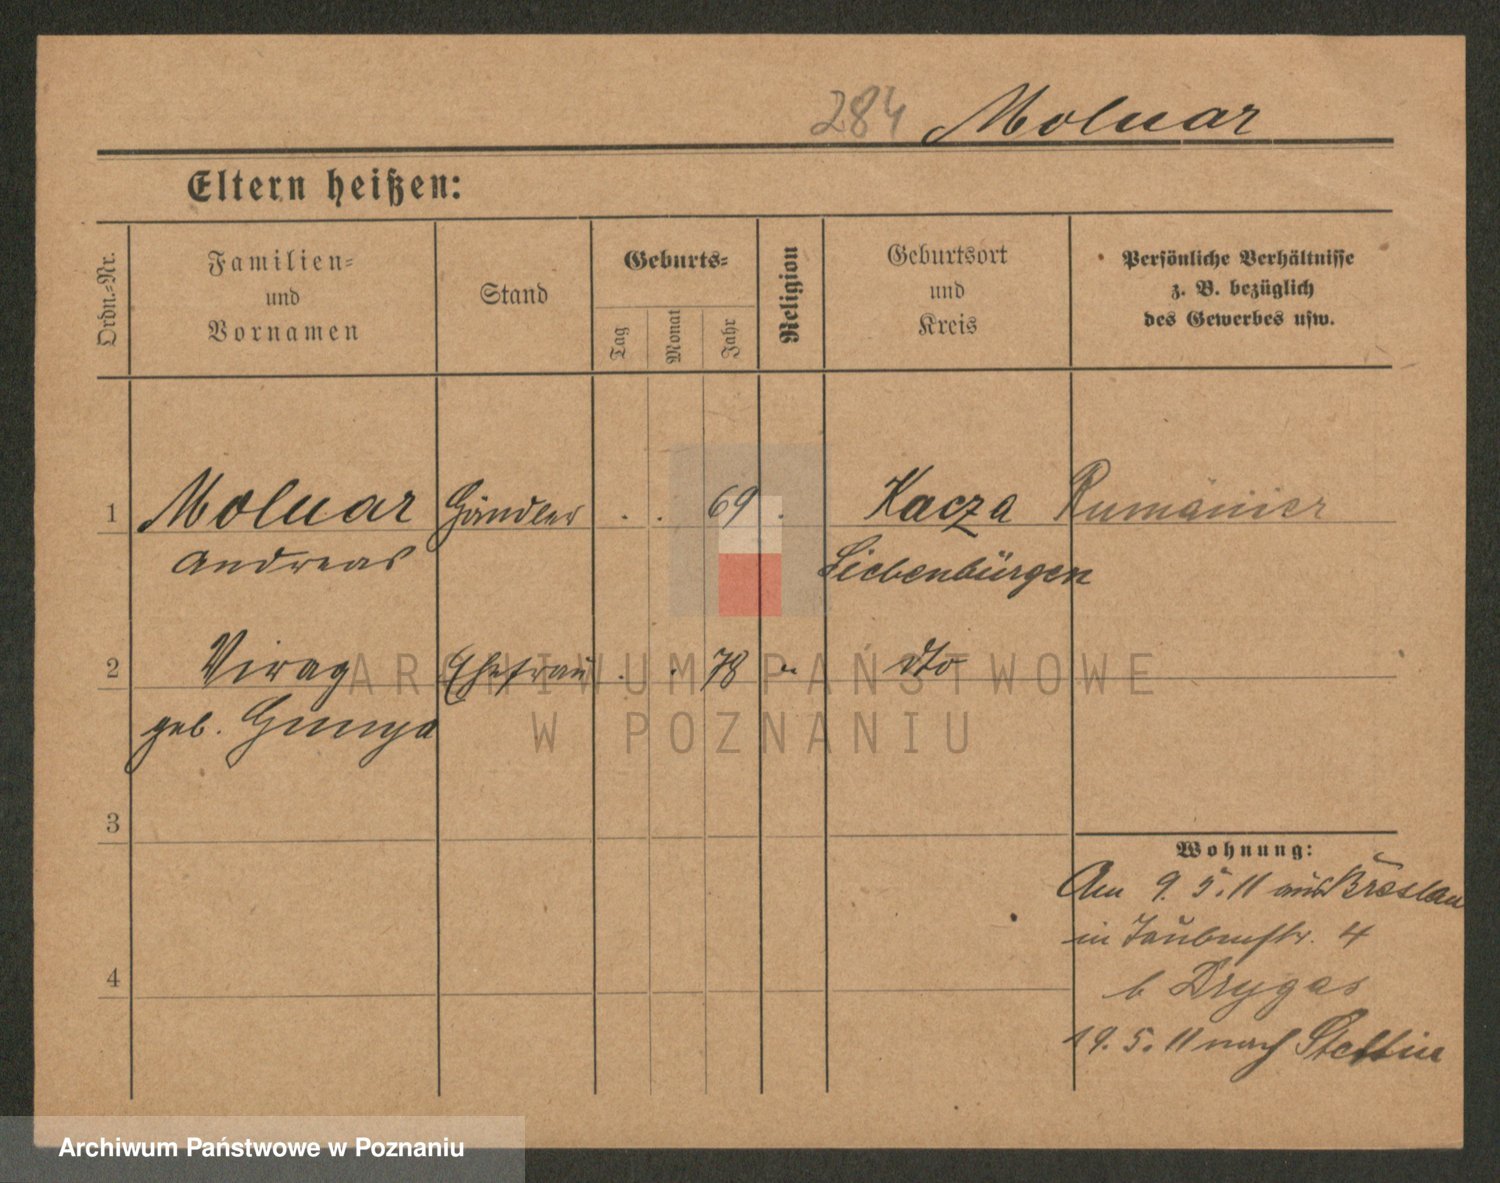 284 Molnar
Eltern heißen:
Ordn.-Nr.
Familien-
und
Vornamen
Stand
Geburts-
Tag
Monat
Jahr
Religion
Geburtsort
und
Kreis
Persönliche Verhältnisse
z. B. bezüglich
des Gewerbes usw.
1 Molnar Händler . . 69 . Kacza Rumänier
Andreas Siebenbürgen
2 Virag Ehefrau . . 78 " dto
geb.
3
4
Wohnung:
Am 9.5.11 aus Breslau
in Taubenstr. 4
b Drygas
19.5.11 nach Stettin
ARCHIWUM PAŃSTWOWE
W POZNANIU
Archiwum Państwowe w Poznaniu